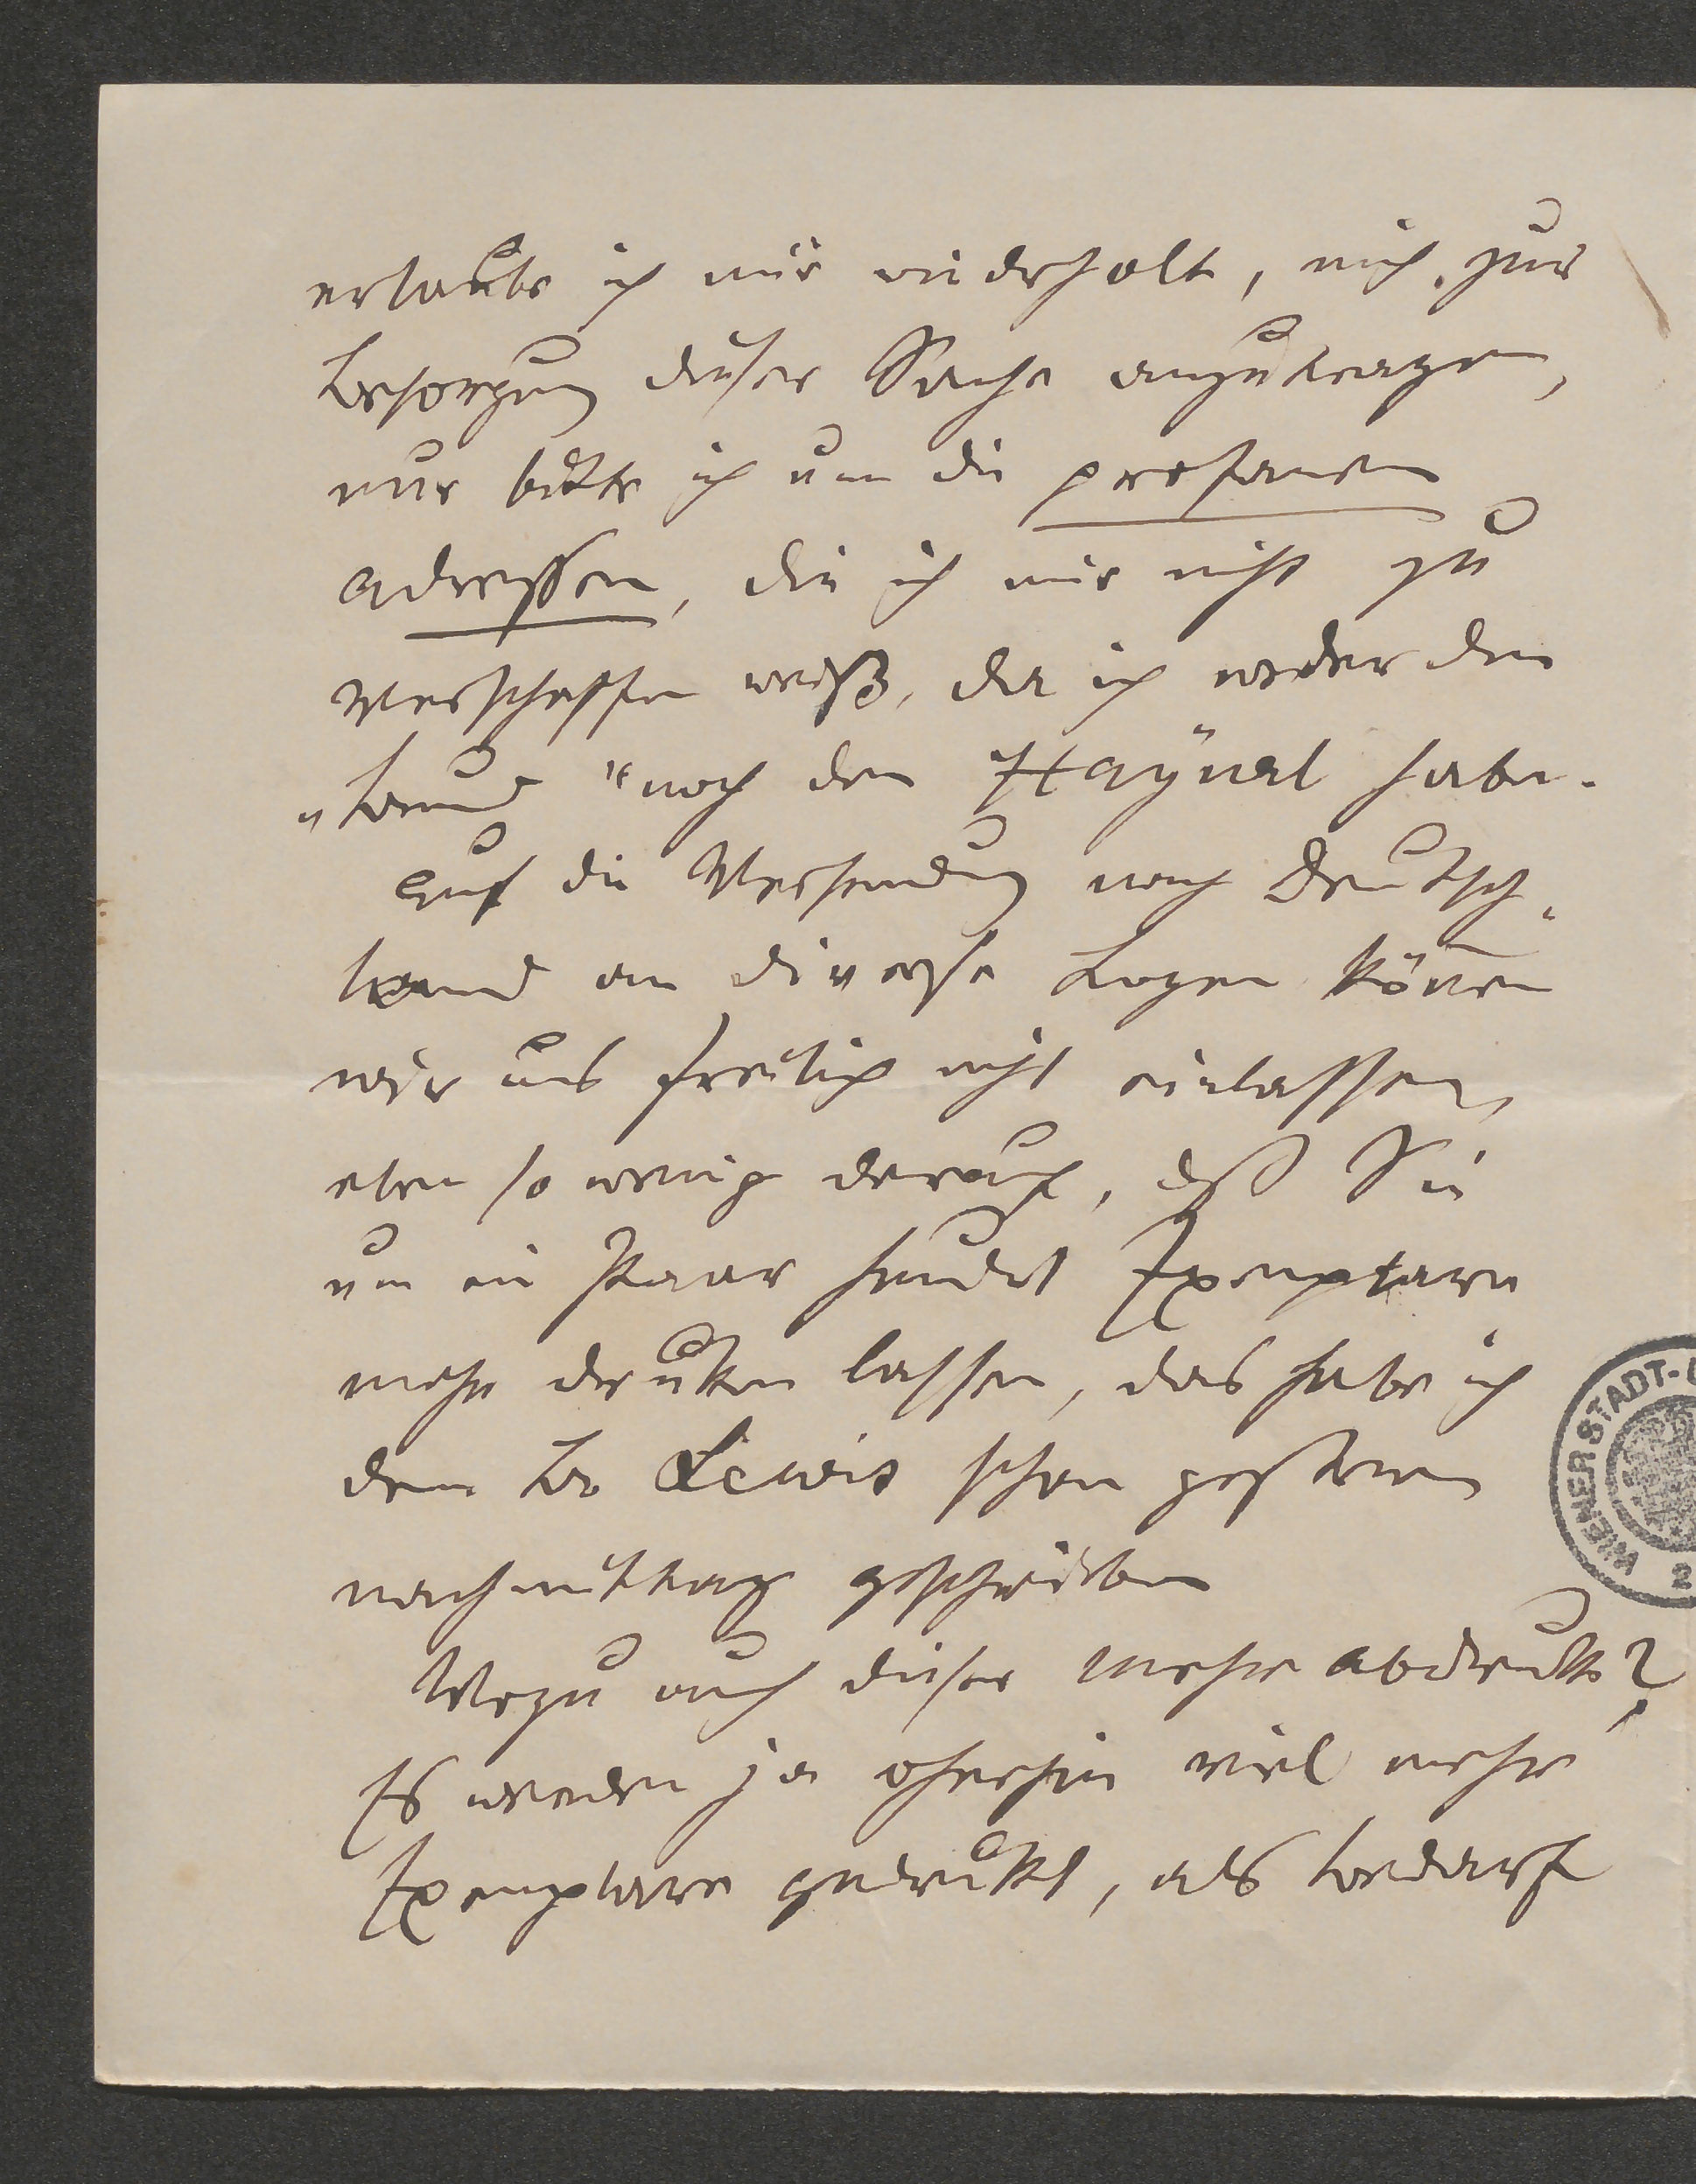 erlaube ich mir wiederholt, mich zur
Besorgung dieser Sache anzutragen,
nur bitte ich um die profanen
Adressen, die ich mir nicht zu
verschaffen weiß, da ich weder den
„Bund" noch den Haÿnal habe.
Auf die Versendung nach Deutsch„
land an diverse Logen können
wir uns freilich nicht einlassen,
eben so wenig darauf, daß Sie
um ein Paar hundert Exemplare
mehr druken lassen, das habe ich
dem Br Lewis schon gestern
nachmittag geschrieben
Wozu auch dieser mehr abdruk?
Es werden ja ohnehin viel mehr
Exemplare gedrukt, als Bedarf
WIENER STADT-
2